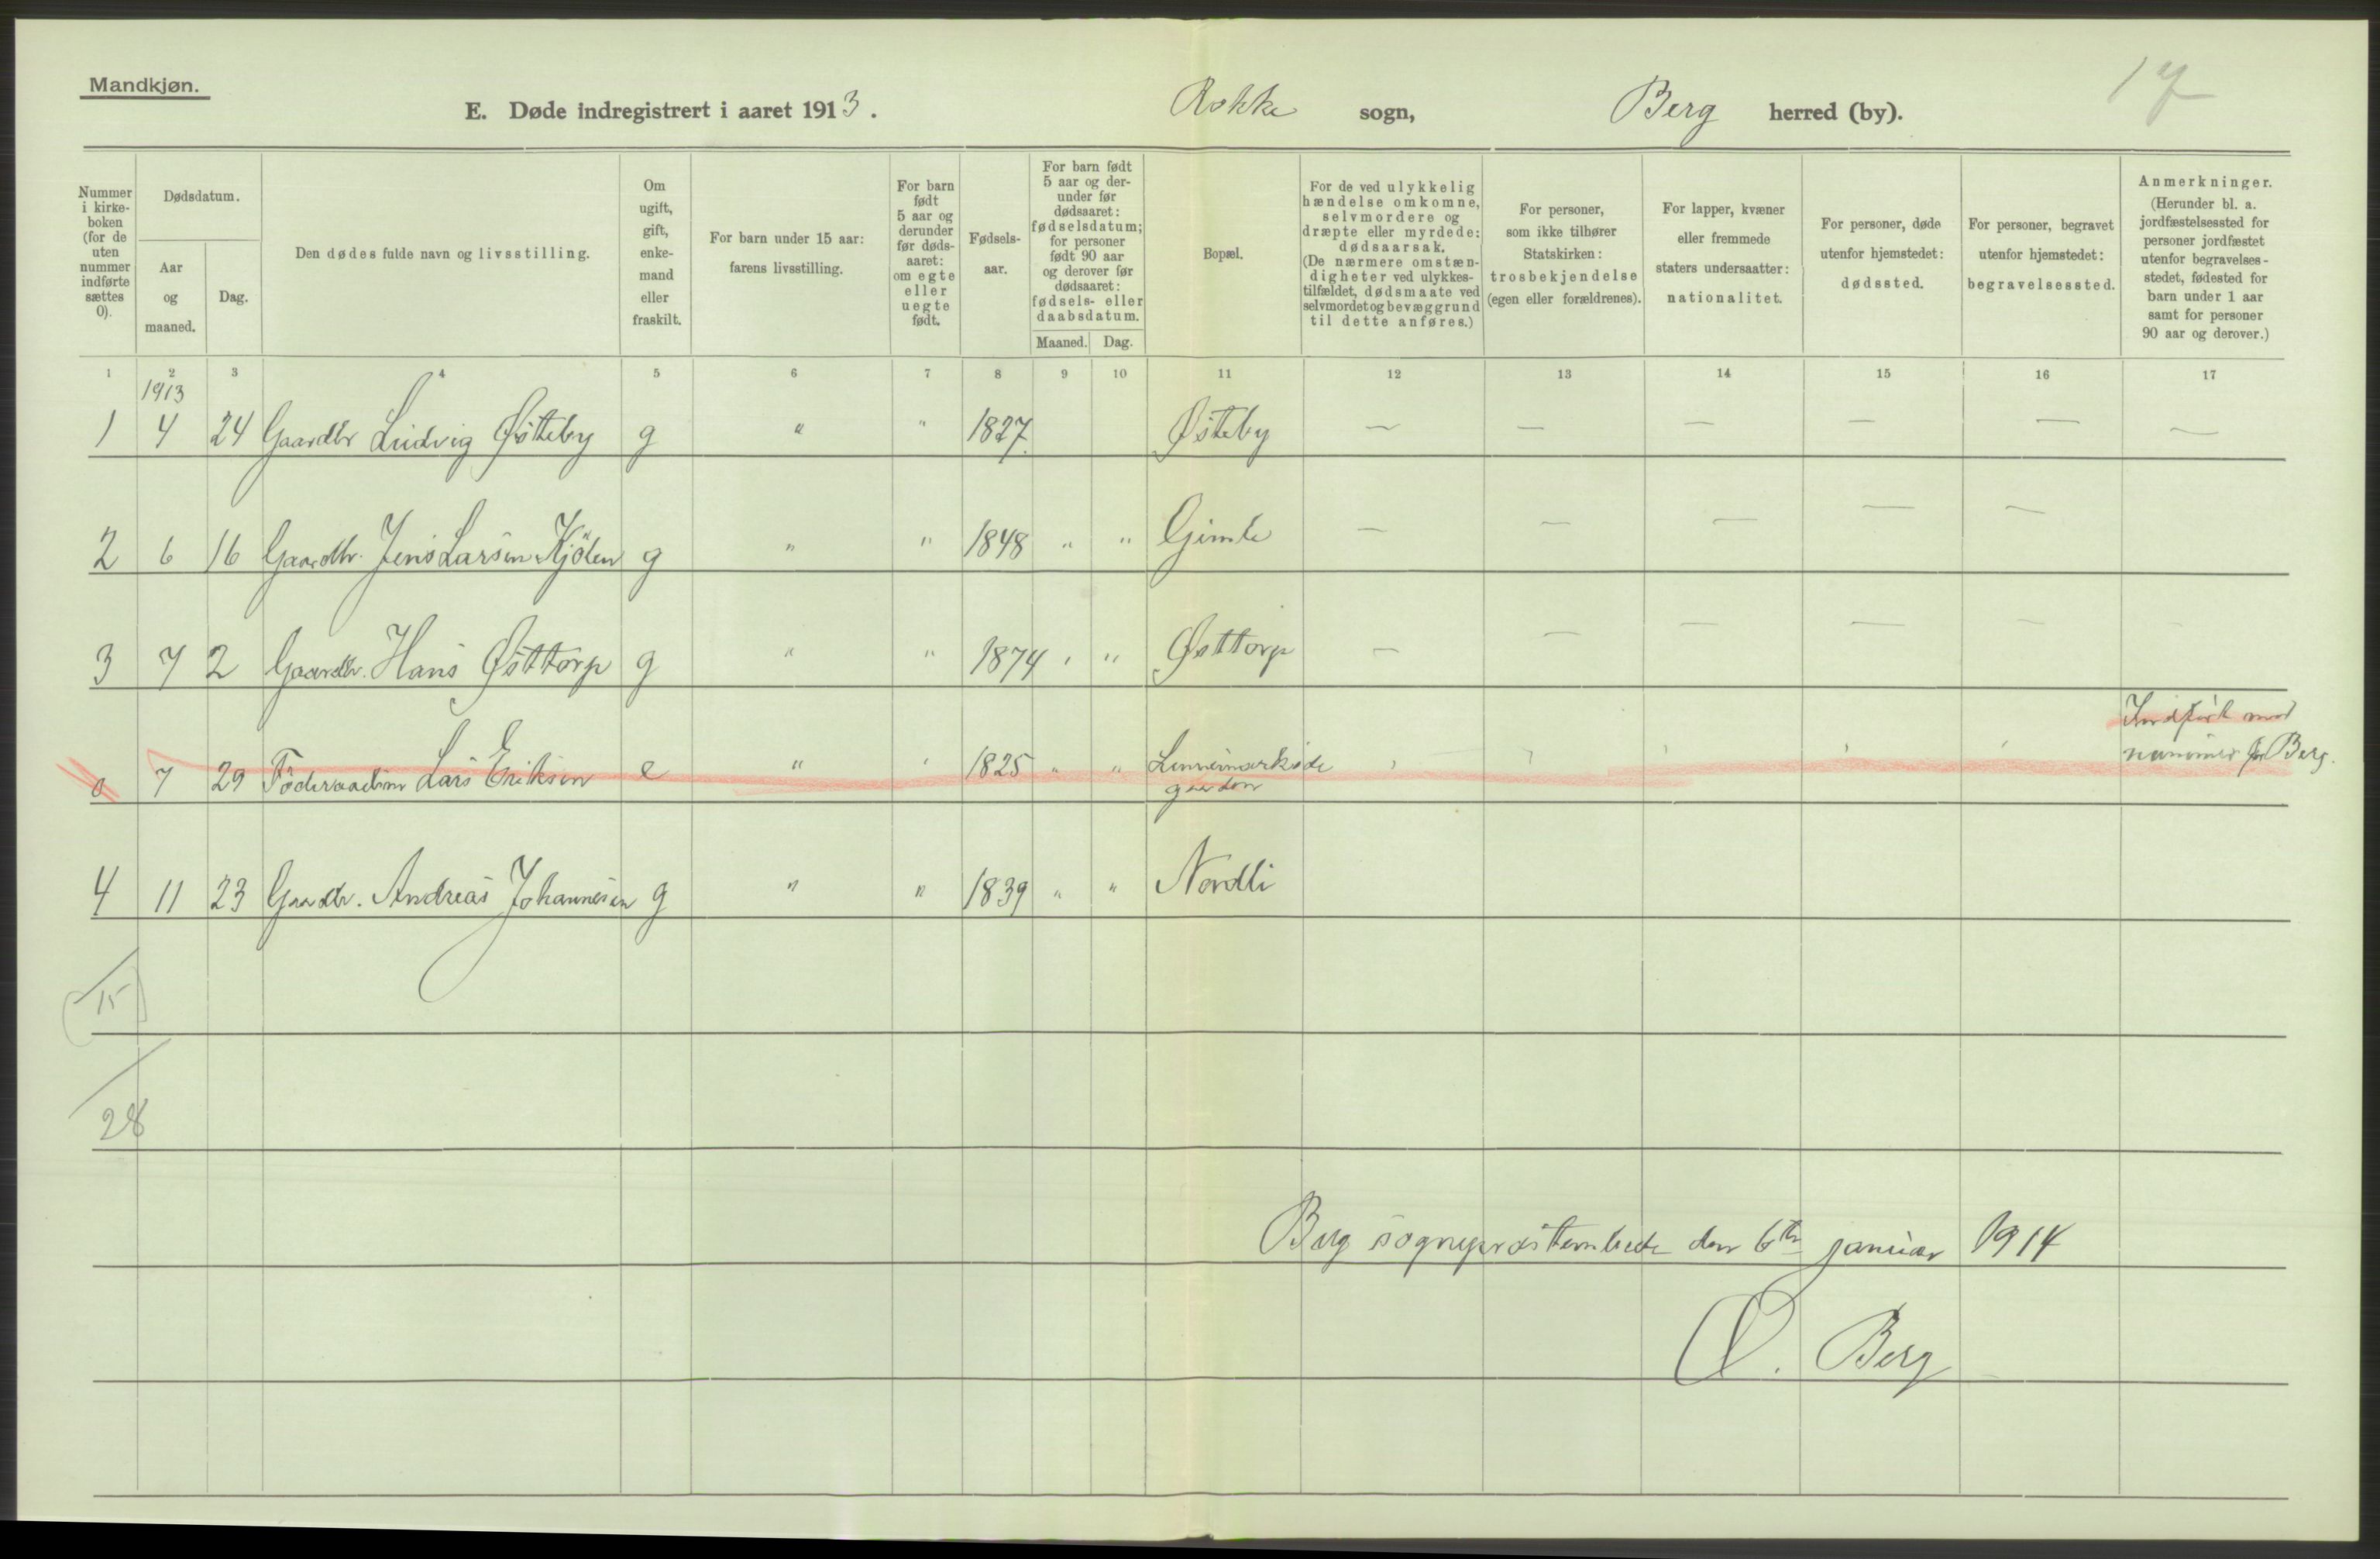 Mandkjøn.
17
E. Døde indregistrert i aaret 1913. Rokke sogn, Berg herred (by).
Nummer i kirke-boken (for de uten nummer indførte sættes 0).
Dødsdatum.
Aar og maaned.
Dag.
Den dødes fulde navn og livsstilling.
Om ugift, gift, enke-mand eller fraskilt.
For barn under 15 aar: farens livsstilling.
For barn født 5 aar og derunder før døds-aaret: om egte eller uegte født.
Fødsels-aar.
For barn født 5 aar og der-under før dødsaaret: fødselsdatum; for personer født 90 aar og derover før dødsaaret: fødsels- eller daabsdatum.
Maaned. Dag.
Bopæl.
For de ved ulykkelig hændelse omkomne, selvmordere og dræpte eller myrdede: dødsaarsak. (De nærmere omstæn-digheter ved ulykkes-tilfældet, dødsmaate ved selvmordet og bevæggrund til dette anføres.)
For personer, som ikke tilhører Statskirken: trosbekjendelse (egen eller forældrenes).
For lapper, kvæner eller fremmede staters undersaatter: nationalitet.
For personer, døde utenfor hjemstedet: dødssted.
For personer, begravet utenfor hjemstedet: begravelsessted.
Anmerkninger. (Herunder bl. a. jordfæstelsessted for personer jordfæstet utenfor begravelses-stedet, fødested for barn under 1 aar samt for personer 90 aar og derover.)
1 2 3 4 5 6 7 8 9 10 11 12 13 14 15 16 17
1913
1 4 24 Gaardbr Ludvig Østteby g " " 1827. Østeby — — — — — —
2 6 16 Gaardbr. Jens Larsen Kjölen g " " 1848 " " Gimle — — — — —
3 7 2 Gaardbr. Hans Østtorp g " " 1874 " " Østtorp — — — — — —
Indført med
0 7 29 Föderaadsm Lars Eriksen e " " 1825 " " nummer for Berg.
gaarden
4 11 23 Gaardbr. Andreas Johannesen g " " 1839 " " Nordli
15
28
Berg sogneprestembede den 6te januar 1914
O. Berg